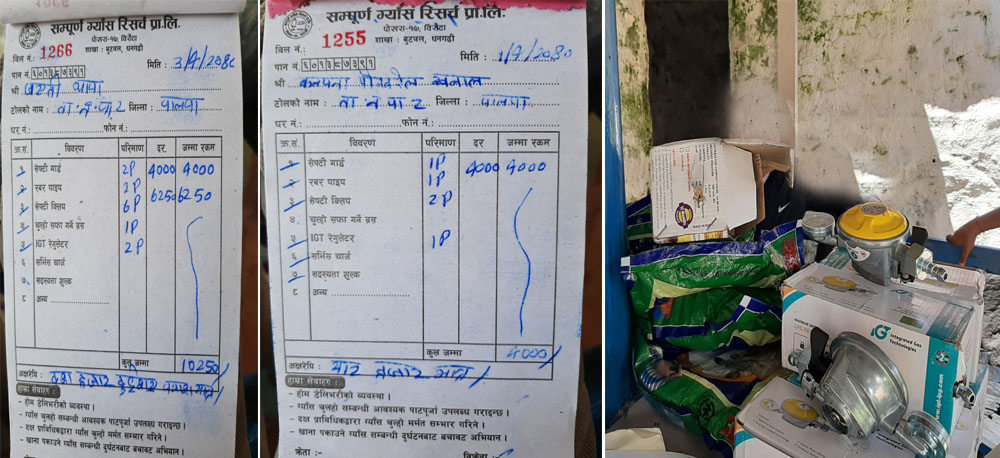 सम्पूर्ण ग्याँस रिसर्च प्रा.लि.
पोखरा-१७, विरौटा
शाखा : बुटवल, धनगढी
बिल नं.: 1266
मिति : 3/7/2080
पान नं. ६०१३८७३९१
श्री
टोलको नाम : ता न पा 2 जिल्ला : पाल्पा
घर नं.: फोन नं.:
क्र.सं. विवरण परिमाण दर जम्मा रकम
१ सेफ्टी गार्ड 2P 4000 4000
२ रबर पाइप 2P
३ सेफ्टी क्लिप 6P 6250 6250
४ चुल्हो सफा गर्ने ब्रस 1P
५ IGT रेगुलेटर 2P
६ सर्भिस चार्ज
७ सदस्यता शुल्क
८ अन्य
कुल जम्मा 10250
अक्षरेपि : दश हजार दुई सय पचास मात्र
हाम्रा सेवाहरु :
- होम डेलिभरीको व्यवस्था ।
- ग्याँस सम्बन्धी आवश्यक पाटपूर्जा उपलब्ध गराइन्छ ।
- दक्ष प्राविधिकद्वारा ग्याँस चुल्हो मर्मत सम्भार गरिने ।
- खाना पकाउने ग्याँस सम्बन्धी दुर्घटनबाट बचावट अभियान ।
सम्पूर्ण ग्याँस रिसर्च प्रा.लि.
पोखरा-१७, विरौटा
शाखा : बुटवल, धनगढी
बिल नं.: 1255
मिति : 1/7/2080
पान नं. ६०१३८७३९१
श्री कल्पना पौडेल खनाल
टोलको नाम : ता न पा 2 जिल्ला : पाल्पा
घर नं.: फोन नं.:
क्र.सं. विवरण परिमाण दर जम्मा रकम
१ सेफ्टी गार्ड 1P 4000 4000
२ रबर पाइप 1P
३ सेफ्टी क्लिप 2P
४ चुल्हो सफा गर्ने ब्रस
५ IGT रेगुलेटर 1P
६ सर्भिस चार्ज
७ सदस्यता शुल्क
८ अन्य
कुल जम्मा 4000/
अक्षरेपि : चार हजार मात्र
हाम्रा सेवाहरु :
- होम डेलिभरीको व्यवस्था ।
- ग्याँस सम्बन्धी आवश्यक पाटपूर्जा उपलब्ध गराइन्छ ।
- दक्ष प्राविधिकद्वारा ग्याँस चुल्हो मर्मत सम्भार गरिने ।
- खाना पकाउने ग्याँस सम्बन्धी दुर्घटनबाट बचावट अभियान ।
क्रेता :-
विक्रेता :-
IGT Integrated Gas Technologies